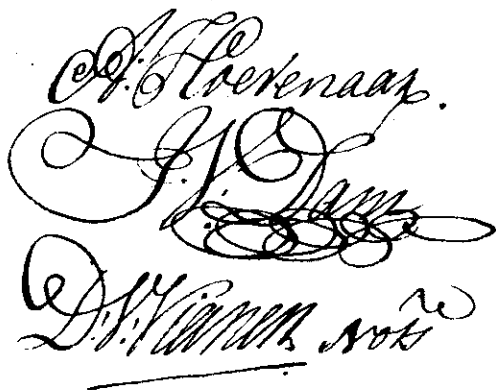 A: Hoevenaar.
J. V: Dam
D: V: Vianen Nots re